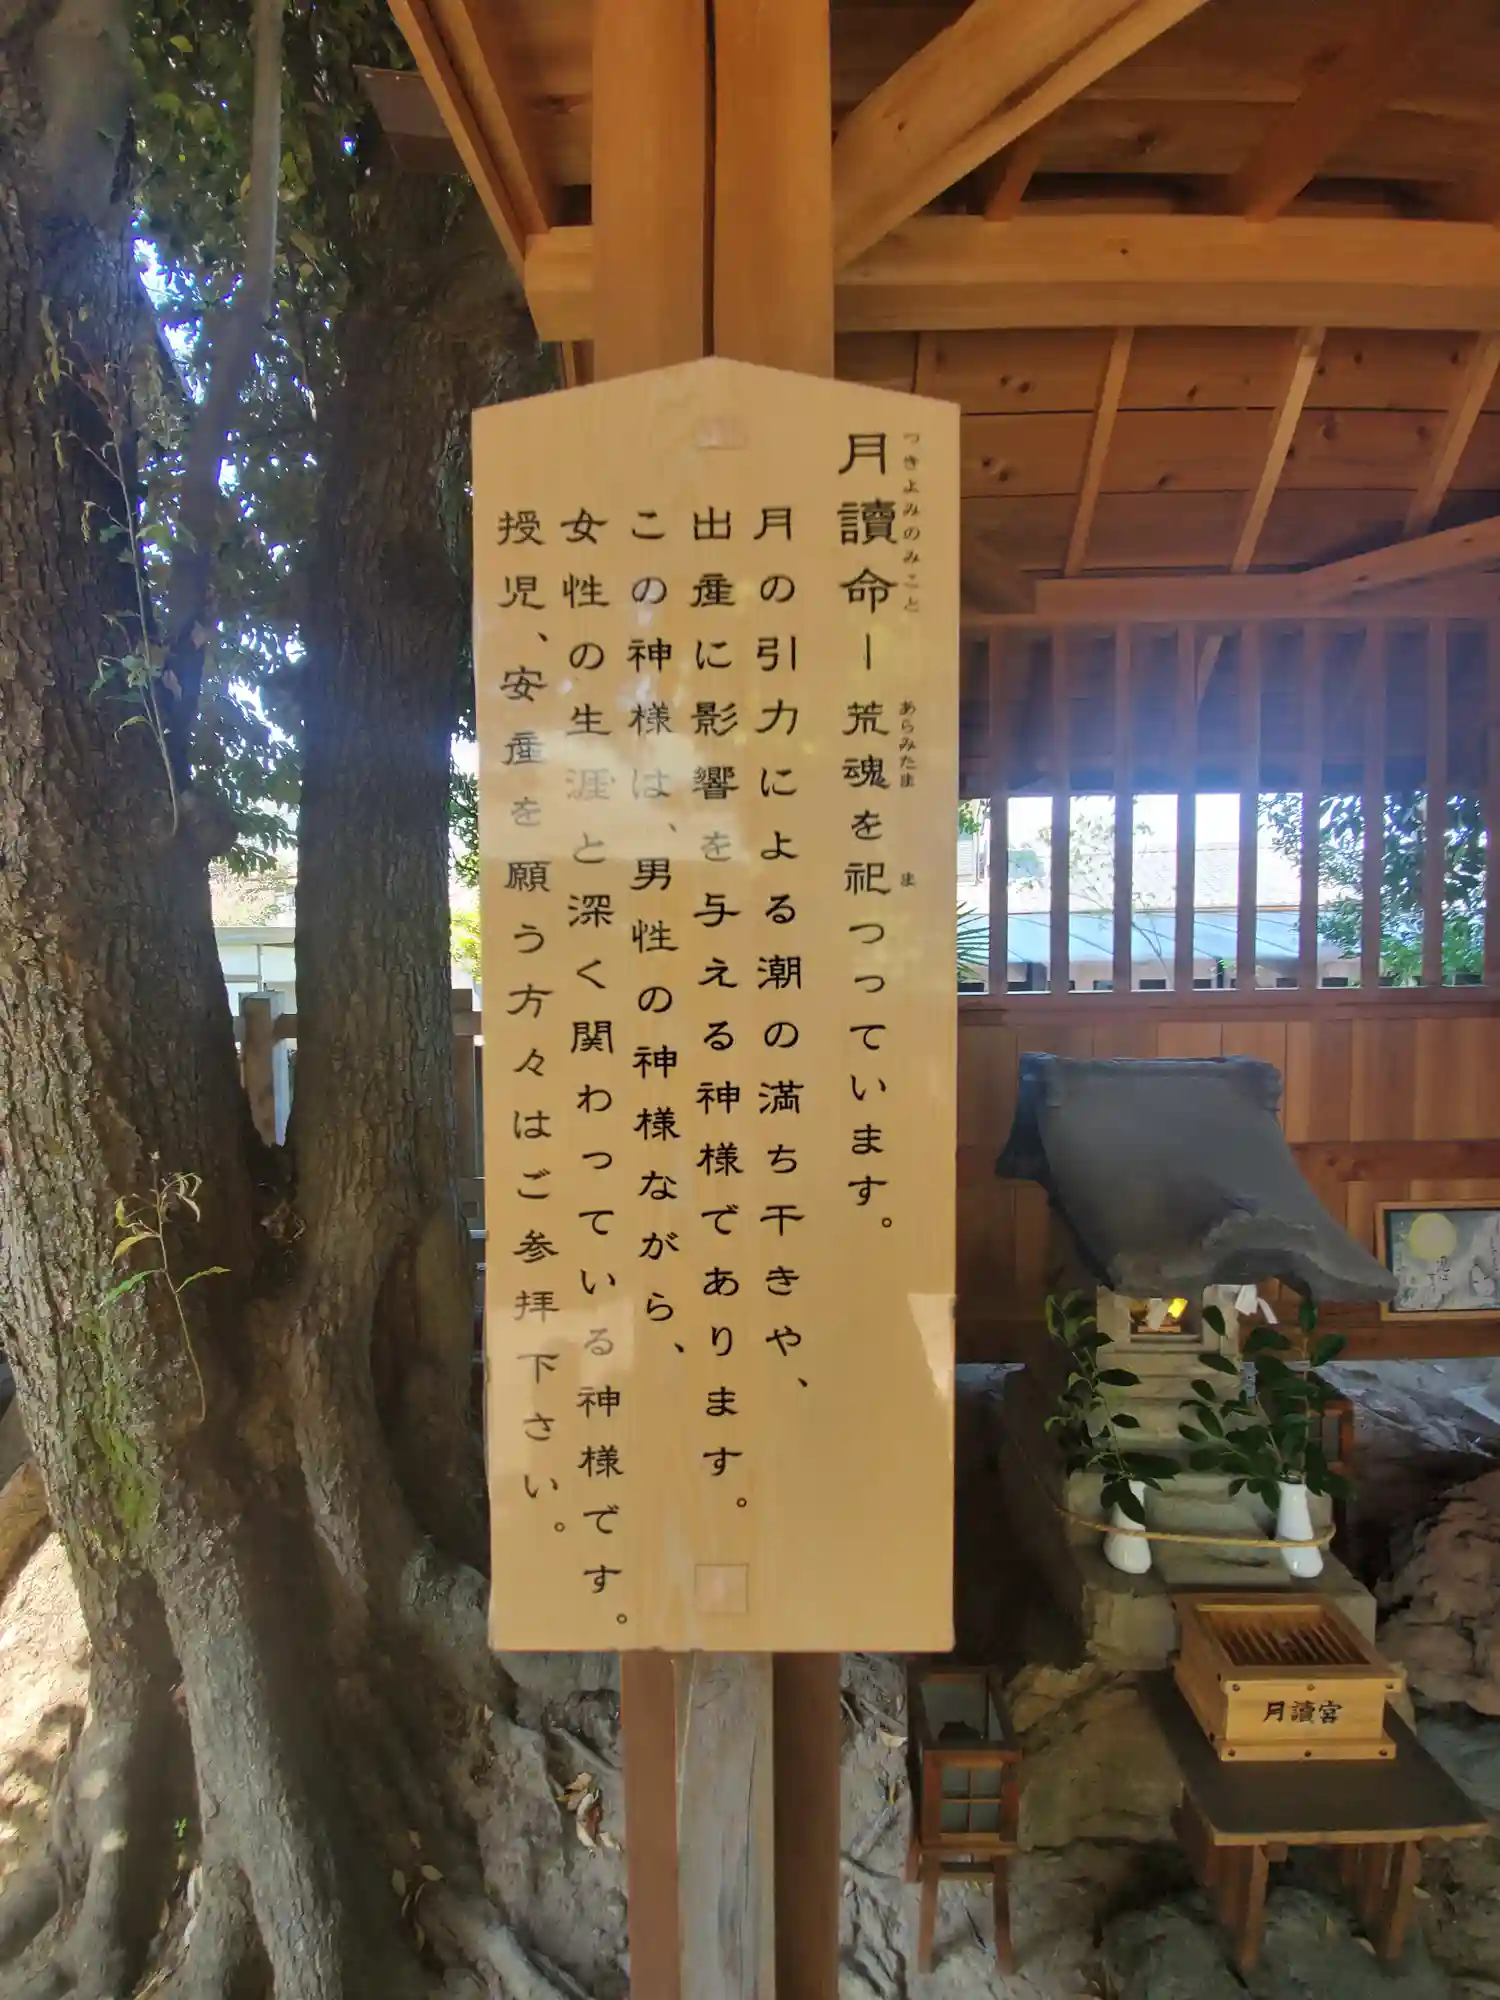 月讀命ー荒魂を祀つっています。
つきよみのみこと
あらみたま
ま
月の引力による潮の満ち干きや、
出産に影響を与える神様であります。
この神様は、男性の神様ながら、
女性の生涯と深く関わっている神様です。
授児、安産を願う方々はご参拝下さい。
月讀宮